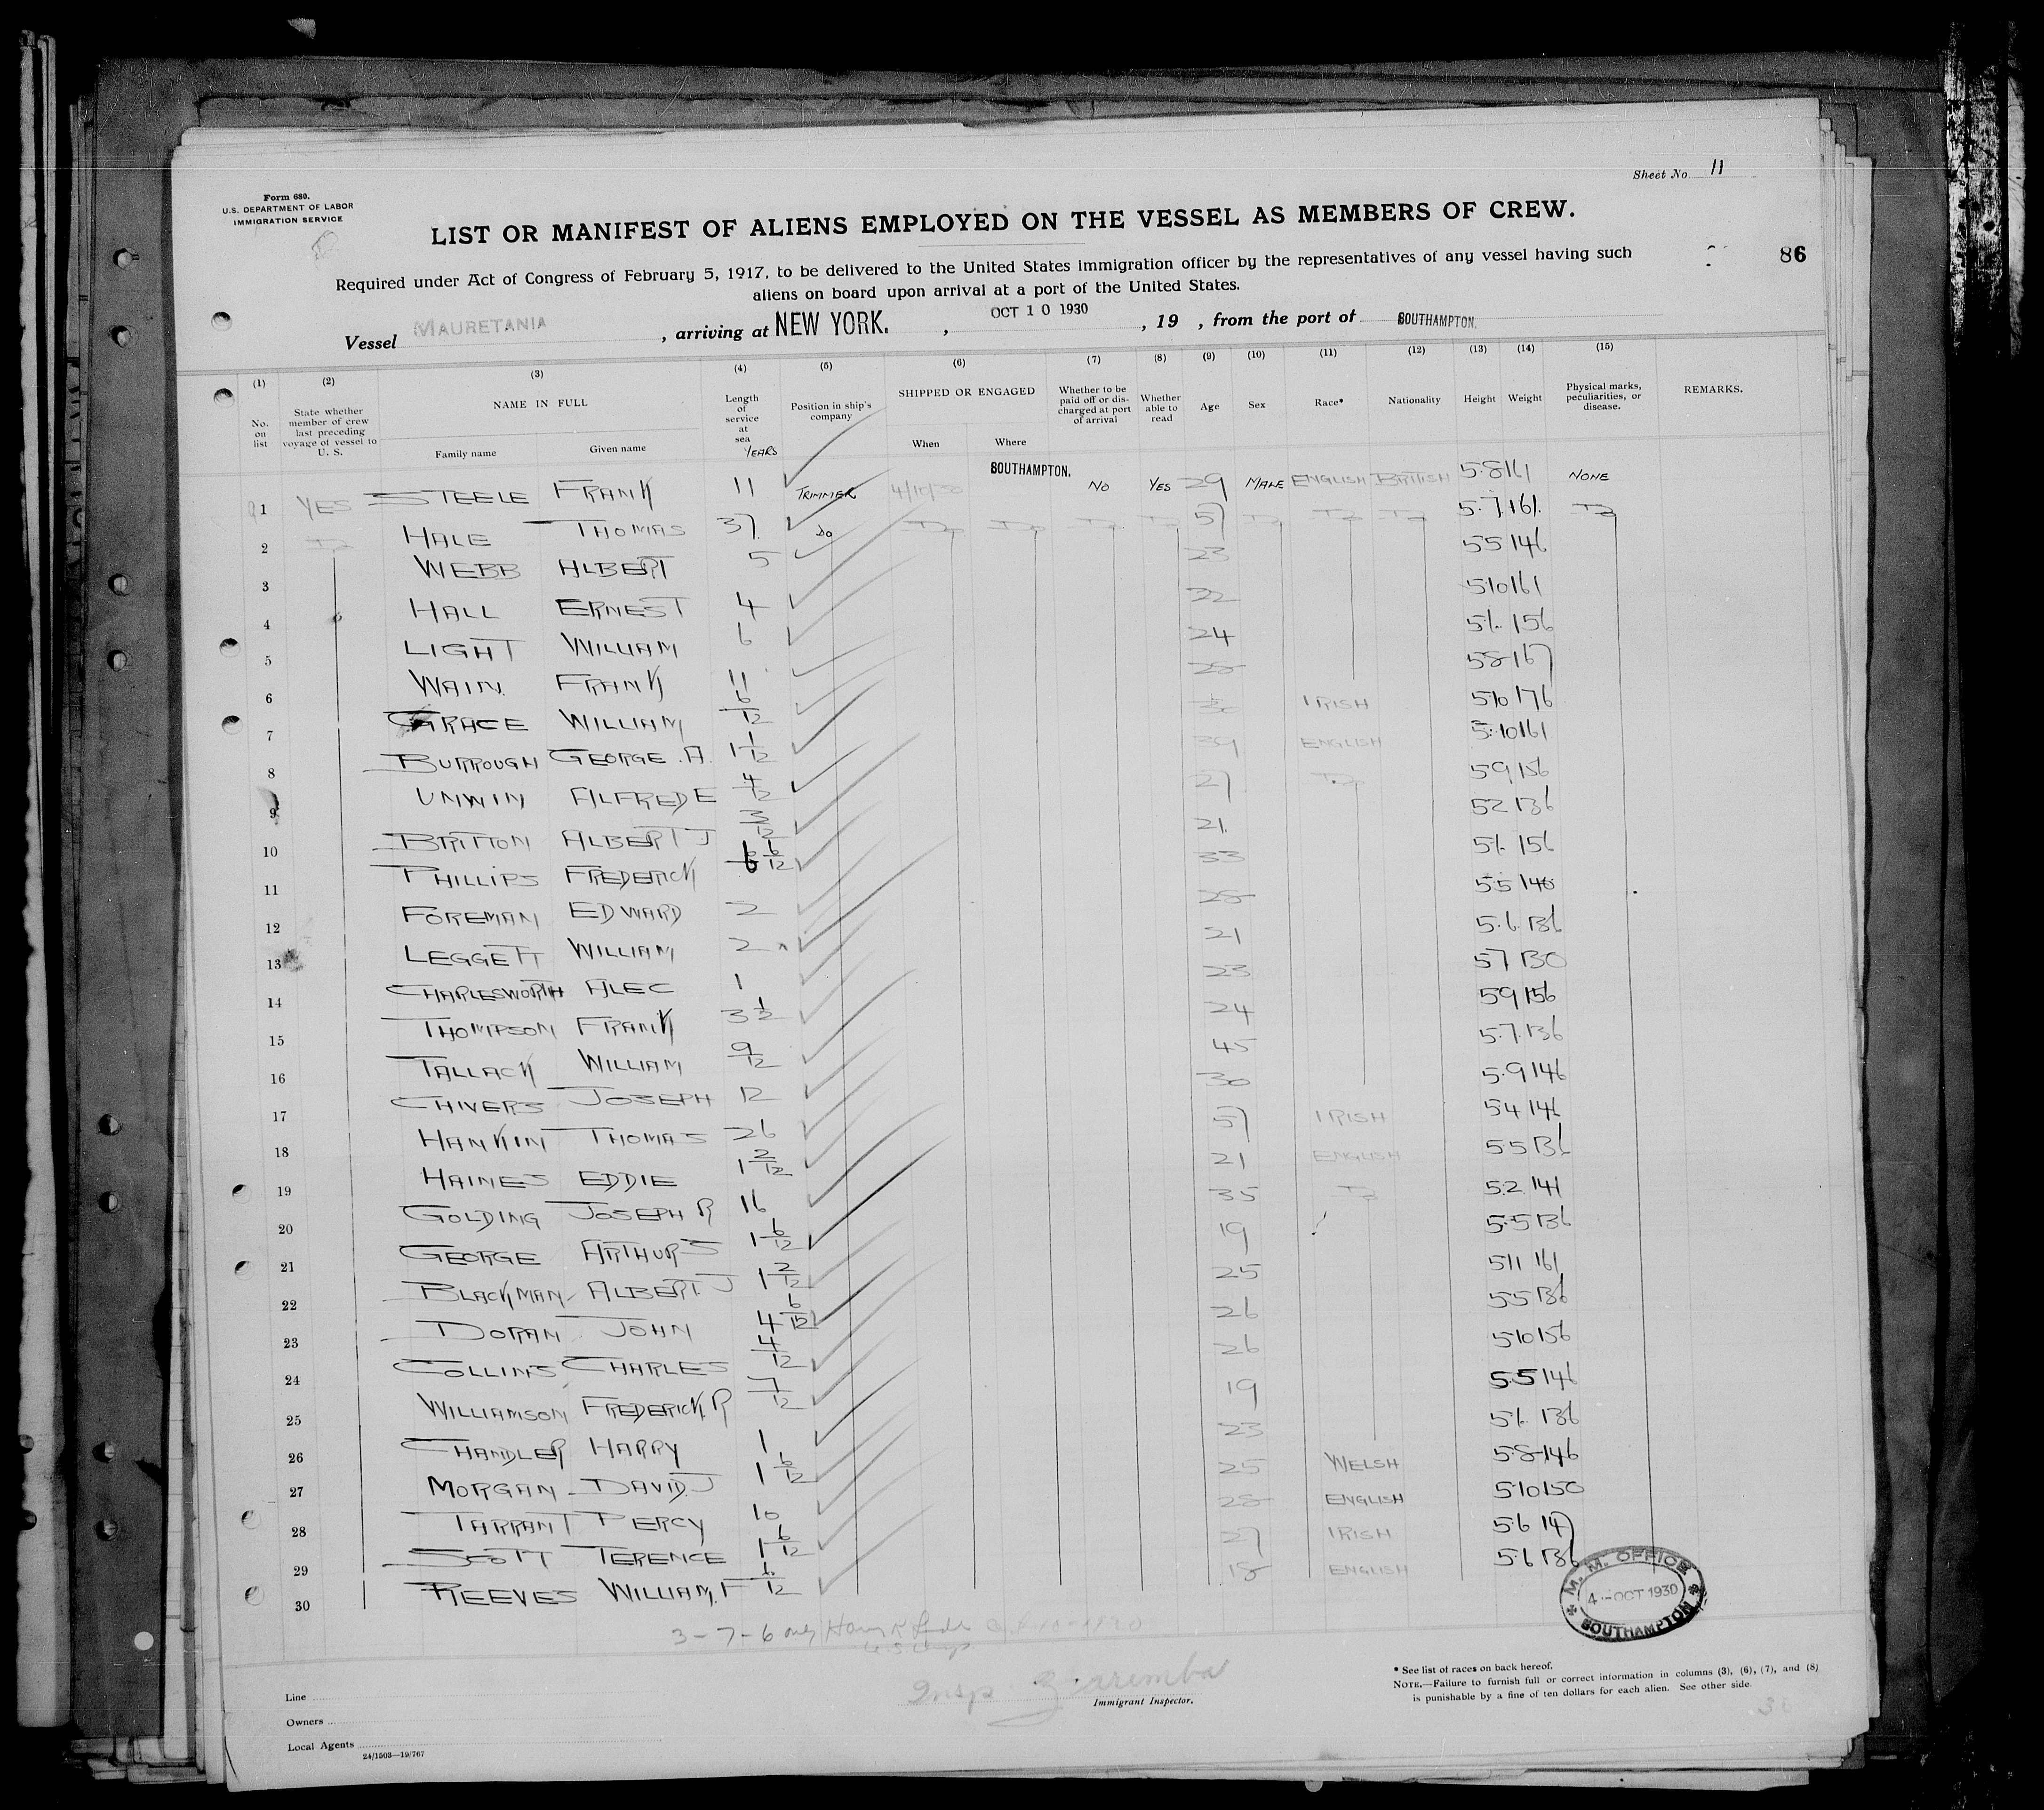 Sheet No. 11
Form 680.
U.S. DEPARTMENT OF LABOR
IMMIGRATION SERVICE
LIST OR MANIFEST OF ALIENS EMPLOYED ON THE VESSEL AS MEMBERS OF CREW.
86
Required under Act of Congress of February 5, 1917, to be delivered to the United States immigration officer by the representatives of any vessel having such
aliens on board upon arrival at a port of the United States.
Vessel MAURETANIA , arriving at NEW YORK. , OCT 10 1930 , 19 , from the port of SOUTHAMPTON.
(1) (2) (3) (4) (5) (6) (7) (8) (9) (10) (11) (12) (13) (14) (15)
No. on list State whether member of crew last preceding voyage of vessel to U. S. NAME IN FULL Family name Given name Length of service at sea YEARS Position in ship's company SHIPPED OR ENGAGED When Where Whether to be paid off or discharged at port of arrival Whether able to read Age Sex Race* Nationality Height Weight Physical marks, peculiarities, or disease. REMARKS.
1 YES STEELE FRANK 11 TRIMMER 4/10/30 SOUTHAMPTON. NO YES 29 MALE ENGLISH BRITISH 5.8 161 NONE
2 Do HALE THOMAS 37 Do Do Do Do Do 57 Do Do Do 5.7 161 Do
3 WEBB ALBERT 5 23 5 5 146
4 HALL ERNEST 4 22 5 10 161
5 LIGHT WILLIAM 6 24 5 6 156
6 WAIN FRANK 11 28 5 8 167
7 GRACE WILLIAM 6/12 IRISH 5 10 176
8 BURROUGH GEORGE . A. 1 1/12 39 ENGLISH 5.10 161
9 UNWIN ALFRED E 4/12 27 Do 5 9 156
10 BRITTON ALBERT J 3/12 21 5 2 136
11 PHILLIPS FREDERICK 6/12 33 5 6 156
12 FOREMAN EDWARD 2 28 5 5 140
13 LEGGETT WILLIAM 2 21 5.6. 136
14 CHARLESWORTH ALEC 1 23 5 7 130
15 THOMPSON FRANK 3 1/2 24 5 9 156
16 TALLACK WILLIAM 9/12 45 5.7. 136
17 CHIVERS JOSEPH 12 30 5.9 146
18 HANKIN THOMAS 26 57 IRISH 5 4 146
19 HAINES EDDIE 1 2/12 21 ENGLISH 5 5 136
20 GOLDING JOSEPH R 16 35 Do 5.2 141
21 GEORGE ARTHUR S 1 6/12 19 5.5 136
22 BLACKMAN ALBERT. J 1 2/12 25 5 11 161
23 DORAN JOHN 4 6/12 26 5 5 136
24 COLLINS CHARLES 4/12 26 5 10 156
25 WILLIAMSON FREDERICK. R 7/12 19 5.5 146
26 CHANDLER HARRY 1 23 5 6. 136
27 MORGAN DAVID. J 1 6/12 25 WELSH 5.8 146
28 TARRANT PERCY 10 28 ENGLISH 5 10 150
29 SCOTT TERENCE 1 6/12 27 IRISH 5.6 147
30 REEVES WILLIAM. F 6/12 18 ENGLISH 5 6 136
M. M. OFFICE
4 - OCT 1930
SOUTHAMPTON
3 - 7 - 6 only
Insp. Zaremba
Immigrant Inspector.
* See list of races on back hereof.
NOTE.—Failure to furnish full or correct information in columns (3), (6), (7), and (8)
is punishable by a fine of ten dollars for each alien. See other side.
Line
Owners
Local Agents
24/1503—19/767